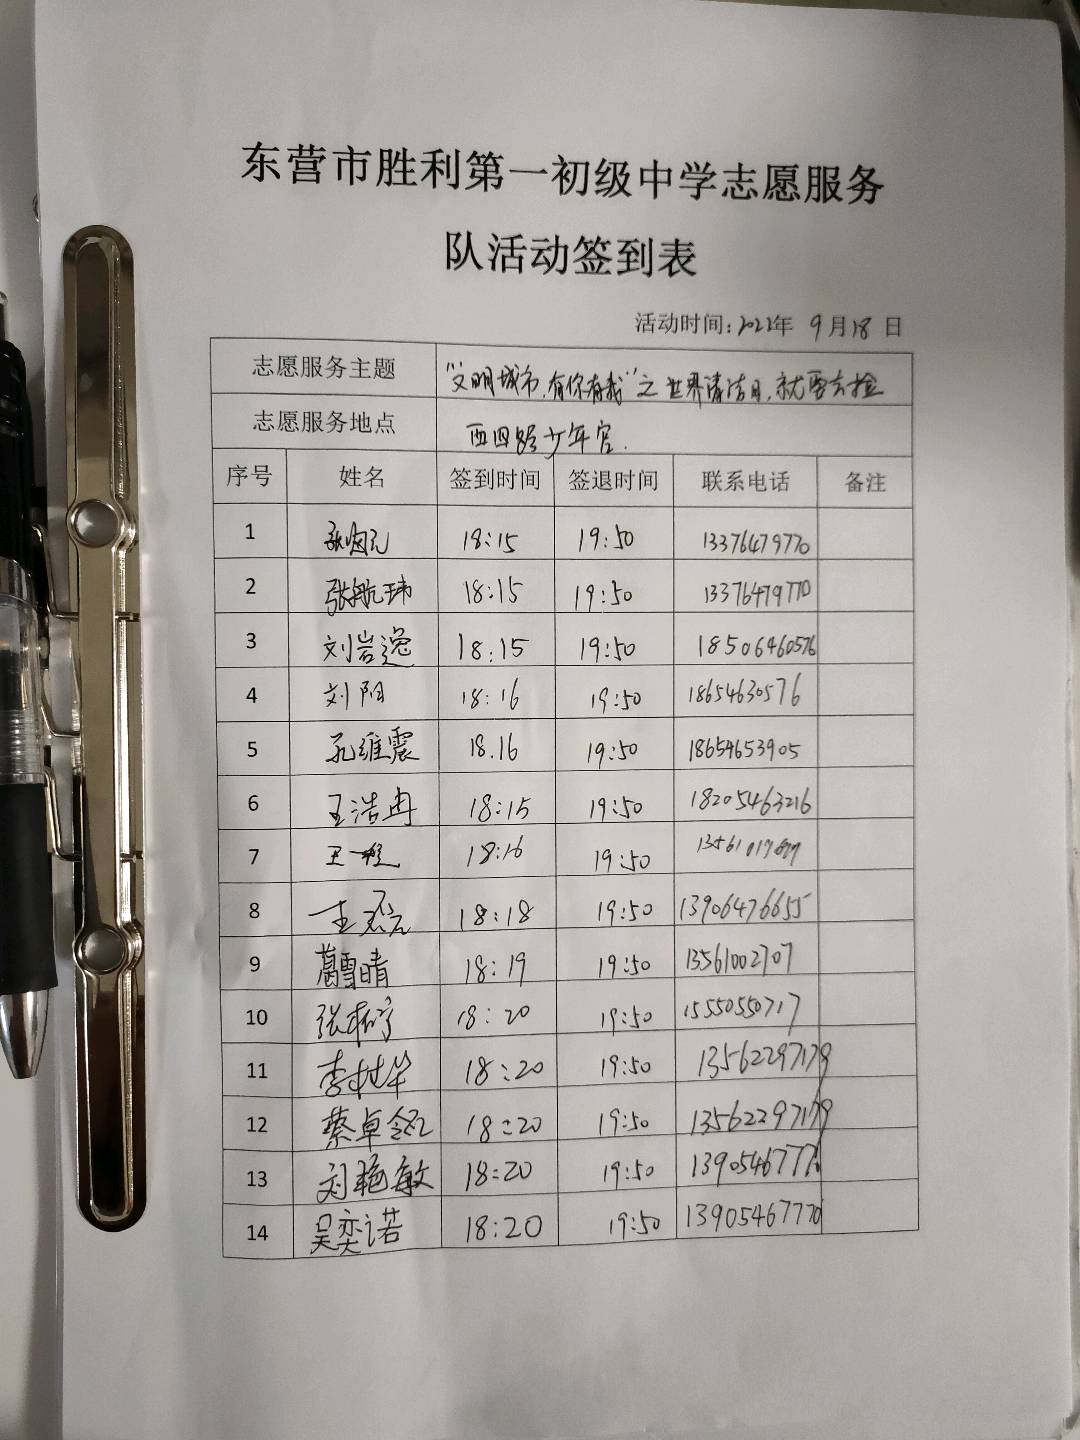 东营市胜利第一初级中学志愿服务
队活动签到表
活动时间:2022年 9月18日
志愿服务主题 "文明城市,有你有我"之世界清洁日,就要去捡
志愿服务地点 西四路少年宫.
序号 姓名 签到时间 签退时间 联系电话 备注
1 18:15 19:50 13376479770
2 张航玮 18:15 19:50 13376479770
3 刘岩逸 18:15 19:50 18506460576
4 刘阳 18:16 19:50 18654630576
5 孔维震 18.16 19:50 18654653905
6 王浩冉 18:15 19:50 18205463216
7 王一程 18:16 19:50
8 18:18 19:50 13906476655
9 葛雪晴 18:19 19:50 13561002707
10 18:20 19:50 15550550717
11 李树华 18:20 19:50 13562297179
12 蔡卓 18:20 19:50 13562297179
13 刘艳敏 18:20 19:50 13905467770
14 吴奕诺 18:20 19:50 13905467770